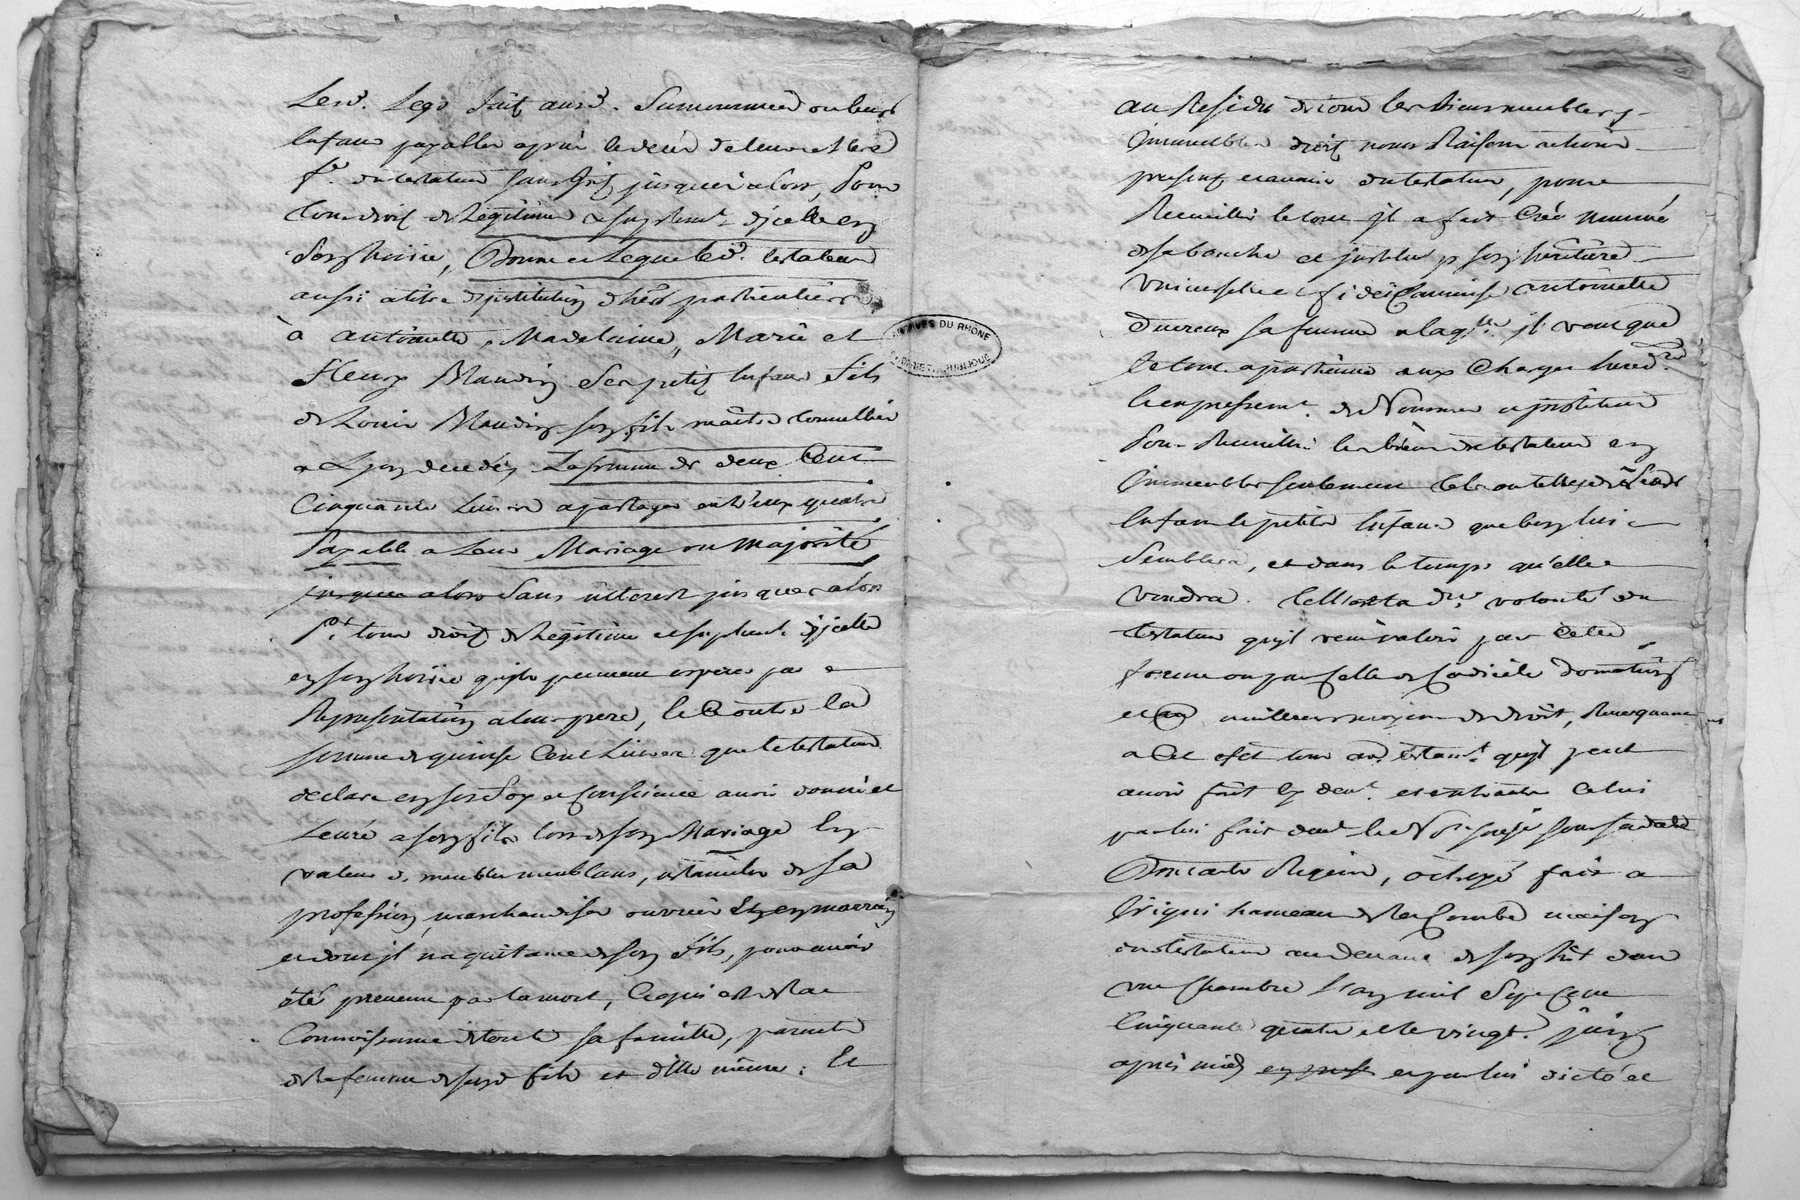 Lesd. Legs fait ausd. Surnommés ou leurs
Enfans payables après le décès de leur Mere
fe. du testateur sans Int. jusques alors, Pour
tous droits de Legitime & suplement d'jcelle en
Son hoirie, Donne et Legue led. testateur
aussi a titre d'jnstitution d'her. particuliere
à Antoinette, Madelaine, Marie et
Fleury Maudin Ses petits Enfans fils
de Louis Maudin son fils maître
a Lyon decedé, La somme de deux Cent
Cinquante Livres a partager entr'eux quatre
Payable a Leur Mariage ou Majorité
jusques alors Sans jnterest jusques alors
Pr. tous droits de Legitime et suplement d'jcelle
en son hoirie qu'ils peuvent esperer par
Representation a leur pere, le tout outre la
somme de quinse Cent Livres que le testateur
declare en sa foy et Conscience avoir donné et
Livré a son fils lors de son Mariage En
valeur de meubles meublans, ustanciles de sa
profession, marchandises ouvrées & en
et dont jl n'a quittance de son fils, pour avoir
été prevenu par la mort, Ce qui est de la
Connoissance de toute sa famille, parents
de la femme de sond. fils et d'Elle même : Et
au Residu de tous les biens meubles
Immeubles droits noms Raisons actions
presents et avenir du testateur, pour
Recueillir le tout jl a fait Créé nommé
de sa bouche et jnstitué pr. son héritiere
Universelle & fideicommise Antoinette
Ducreux sa femme a laqlle. jl veut que
le tout apartienne aux Charges hered.
et expressemt. de Nommer et jnstituer
Pour Recueillir les biens du testateur en
Immeubles seulement Celui ou telle de Ses
Enfans & petits Enfans que bon lui
Semblera, et dans le temps qu'elle
voudra. Telle est la der. volonté du
testateur qu'jl veut valoir par Cette
forme ou par Celle de Codicile donation
et meilleurs moyens de droit, Revoquant
a Cet efet tous aud. testamt. qu'jl peut
avoir fait Cy devt. et entr'autre Celui
par lui fait devt. le Nore. sousé. sous sa date
Dont acte Requis, octroyé fait a
Irigni hameau de la Combe maison
du testateur au devant de son lit dans
une Chambre L'an mil Sept Cent
Cinquante quatre et le vingt juin
après midy et par lui dicté et
ARCHIVES DU RHONE